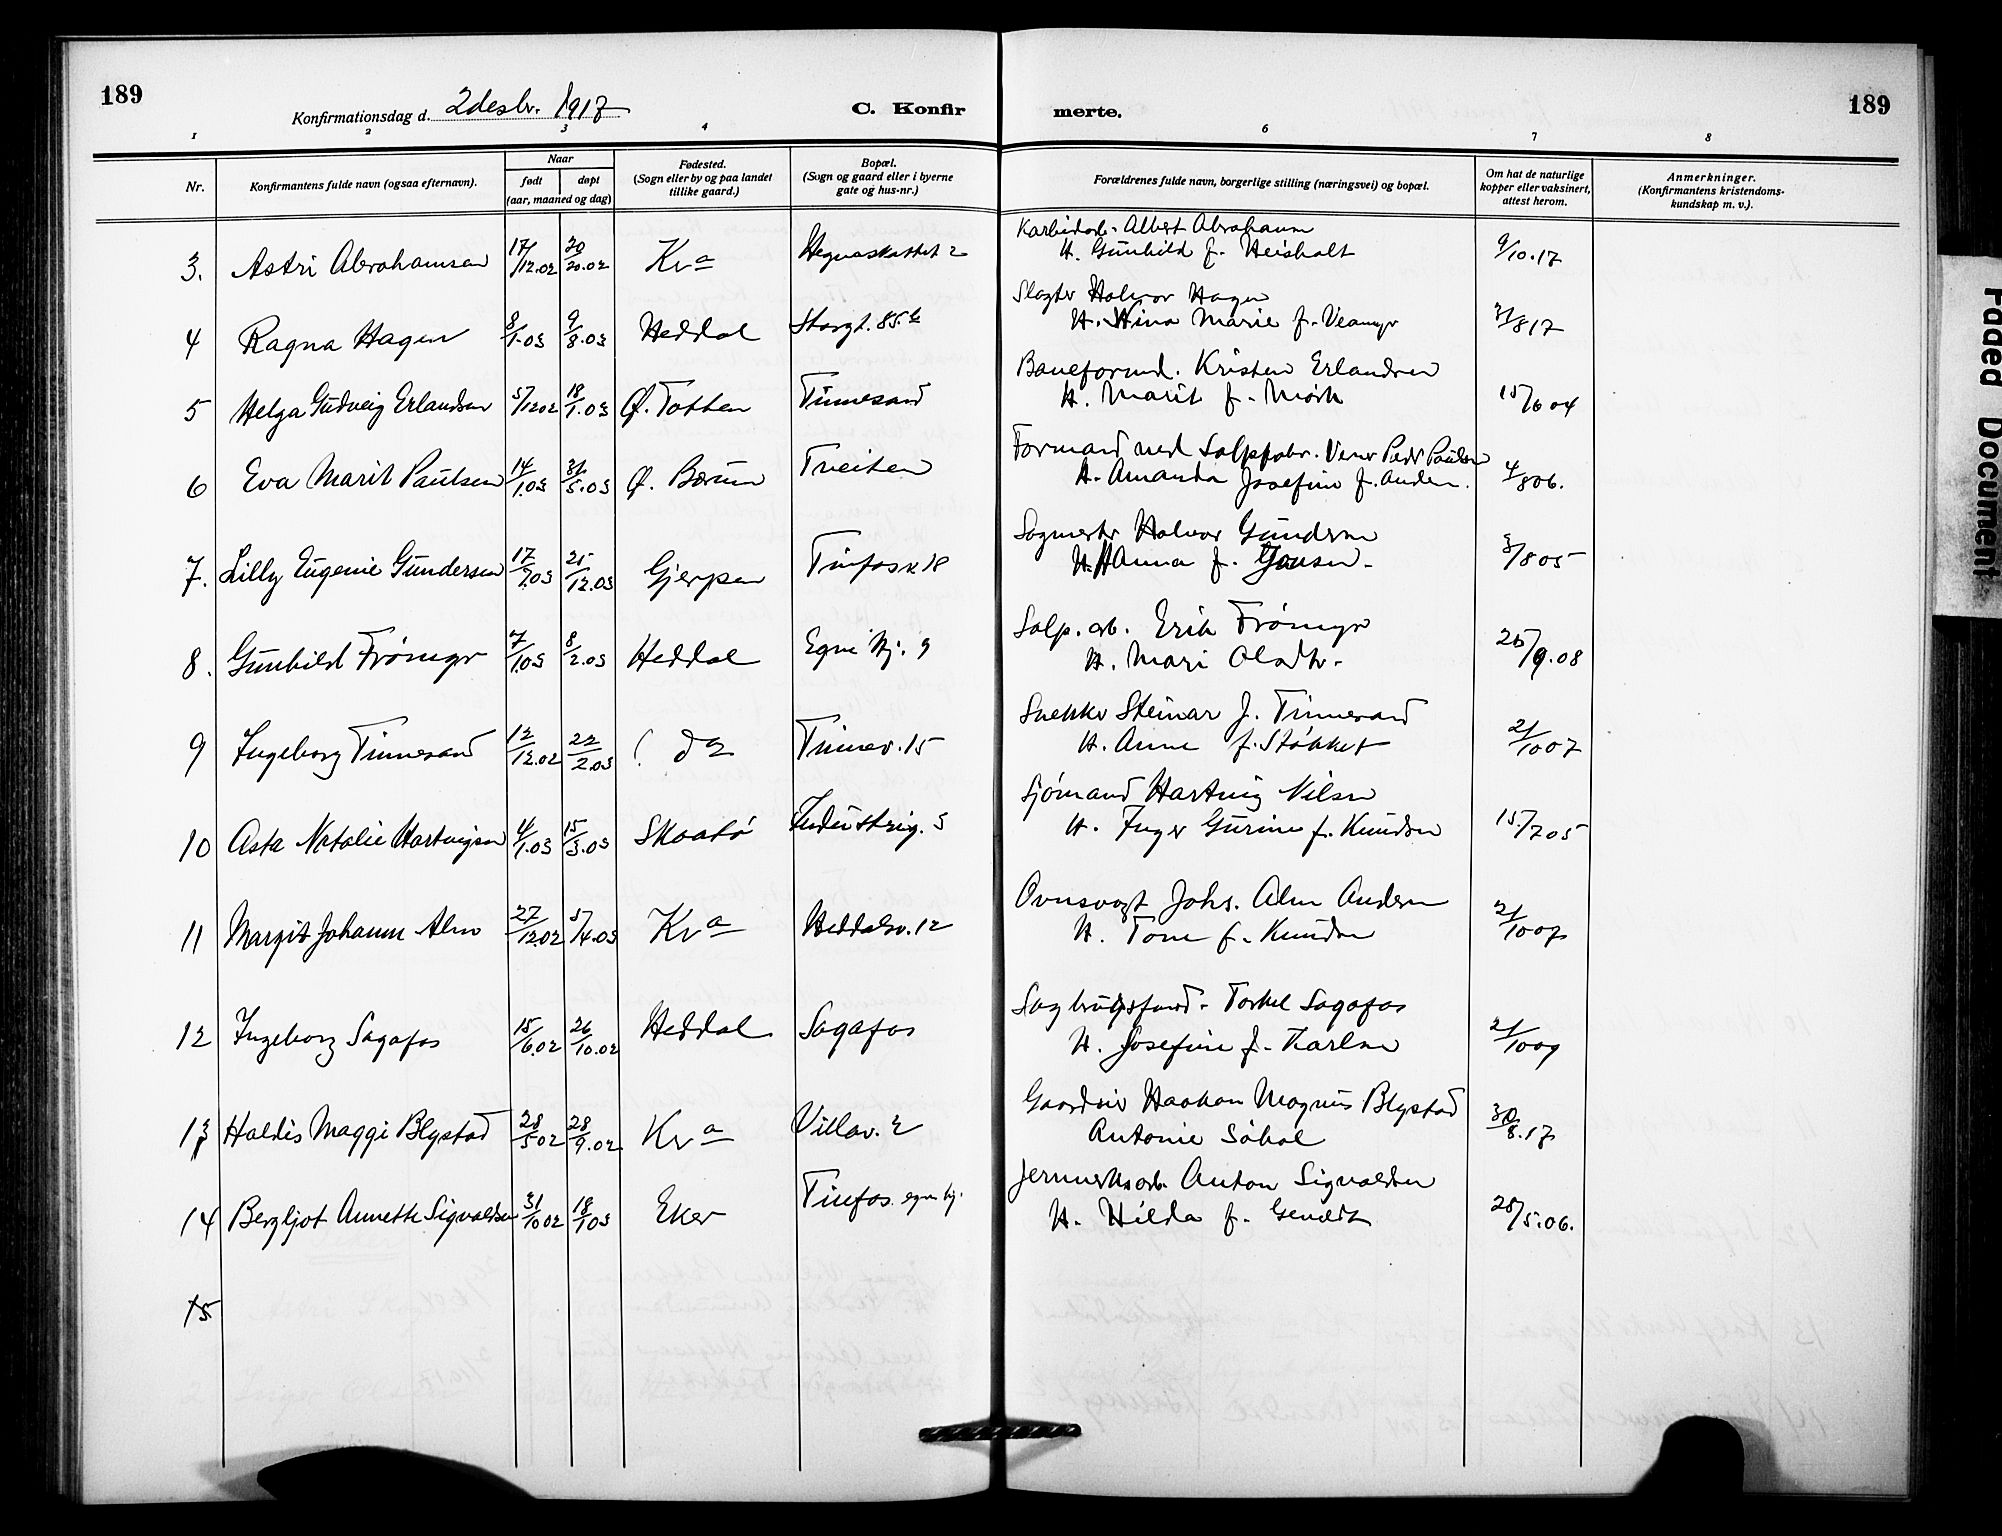 189
Konfirmationsdag d. 2 desbr. 1917
C. Konfir
merte.
189
1 2 3 4 6 7 8
Nr.
Konfirmantens fulde navn (ogsaa efternavn).
Naar
født døpt
(aar, maaned og dag)
Fødested.
(Sogn eller by og paa landet
tillike gaard.)
Bopæl.
(Sogn og gaard eller i byerne
gate og hus-nr.)
Forældrenes fulde navn, borgerlige stilling (næringsvei) og bopæl.
Om hat de naturlige
kopper eller vaksinert,
attest herom.
Anmerkninger.
(Konfirmantens kristendoms-
kundskap m. v.).
3. Astri Abrahamsen 17/12.02 20/20.02 Kva 2
Karbidarb. Albert Abrahamsen
H. Gunhild f. Heisholt 9/10.17
4 Ragna Hagen 8/1.03 9/8.03 Heddal Storgt. 85.b
Slagter Halvor Hagen
H. Nina Marie f. Veamyr 31/817
5 Helga Gudveig Erlandsen 5/1202 18/1.03 Ø. Totten Tinnesand
Baneformd. Kristen Erlandsen
H. Marit f. Mørk 15/604
6 Eva Marit Paulsen 14/1.03 31/5.03 Ø. Bærum Tveiten
Formand ved Salpfabr. Peder Paulsen
H. Amanda Josefine f. Anders. 4/806.
7. Lilly Eugenie Gundersen 17/7.03 25/12.03 Gjerpen Tinfos 18
Sagmester Halvor Gundersen
H. Anna f. Jonsen. 3/805
8. Gunhild Frømyr 7/1.03 8/2.03 Heddal Egne Hj. 9
Salp. arb. Erik Frømyr
H. Mari Olsdtr. 26/9.08
9 Ingeborg Tinnesand 12/12.02 22/2.03 do Tinnev. 15
Snekker Steinar J. Tinnesand
H. Anne f. Støkket 21/1007
10 Asta Natalie Hartvigsen 4/1.03 15/3.03 Skaatø Industrig. 5
Sjømand Hartvig Nilsen
H. Inger Gurine f. Knudsen 15/705
11 Margit Johanne Alm 27/1202 5/4.03 Kva Heddalsv. 12
Ovnsvogt Johs. Alm Andersen
H. Tone f. Knudsen 21/1007
12 Ingeborg Sagafos 15/6.02 26/10.02 Heddal Sagafos
Sagbrugsformd. Torkel Sagafos
H. Josefine f. Karlsen 21/1009
13 Haldis Maggi Blystad 28/502 28/9.02 Kva Villav. 2
Gaardeier Haakon Magnus Blystad
Antonie Søbøl 30/8.17
14 Bergljot Annette Sigvaldsen 31/1002 18/103 Eker Tinfos egne hj.
Jernverksarb. Anton Sigvaldsen
H. Hilda f. 28/5.06.
15
Faded Document